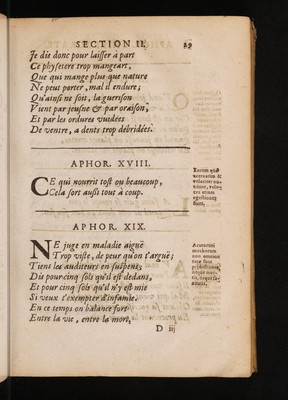 SECTION II. 29
Je dis donc pour laisser à part
Ce physetere trop mangeart,
Que qui mange plus que nature
Ne peut porter, mal il endure;
Qu'ainsi ne soit, la guerison
Vient par jeusne & par oraison,
Et par les ordures vuidées
De ventre, a dents trop débridées.
APHOR. XVIII.
CE qui nourrit tost ou beaucoup,
Cela sort aussi tout à coup.
APHOR. XIX.
NE juge en maladie aiguë
Trop viste, de peur qu'on t'arguë;
Tient les auditeurs en suspens;
Dis pour cinq sols qu'il est dedans,
Et pour cinq sols qu'il n'y est mie
Si veux t'exempter d'infamie.
En ce temps on balance fort
Entre la vie, entre la mort,
D iij